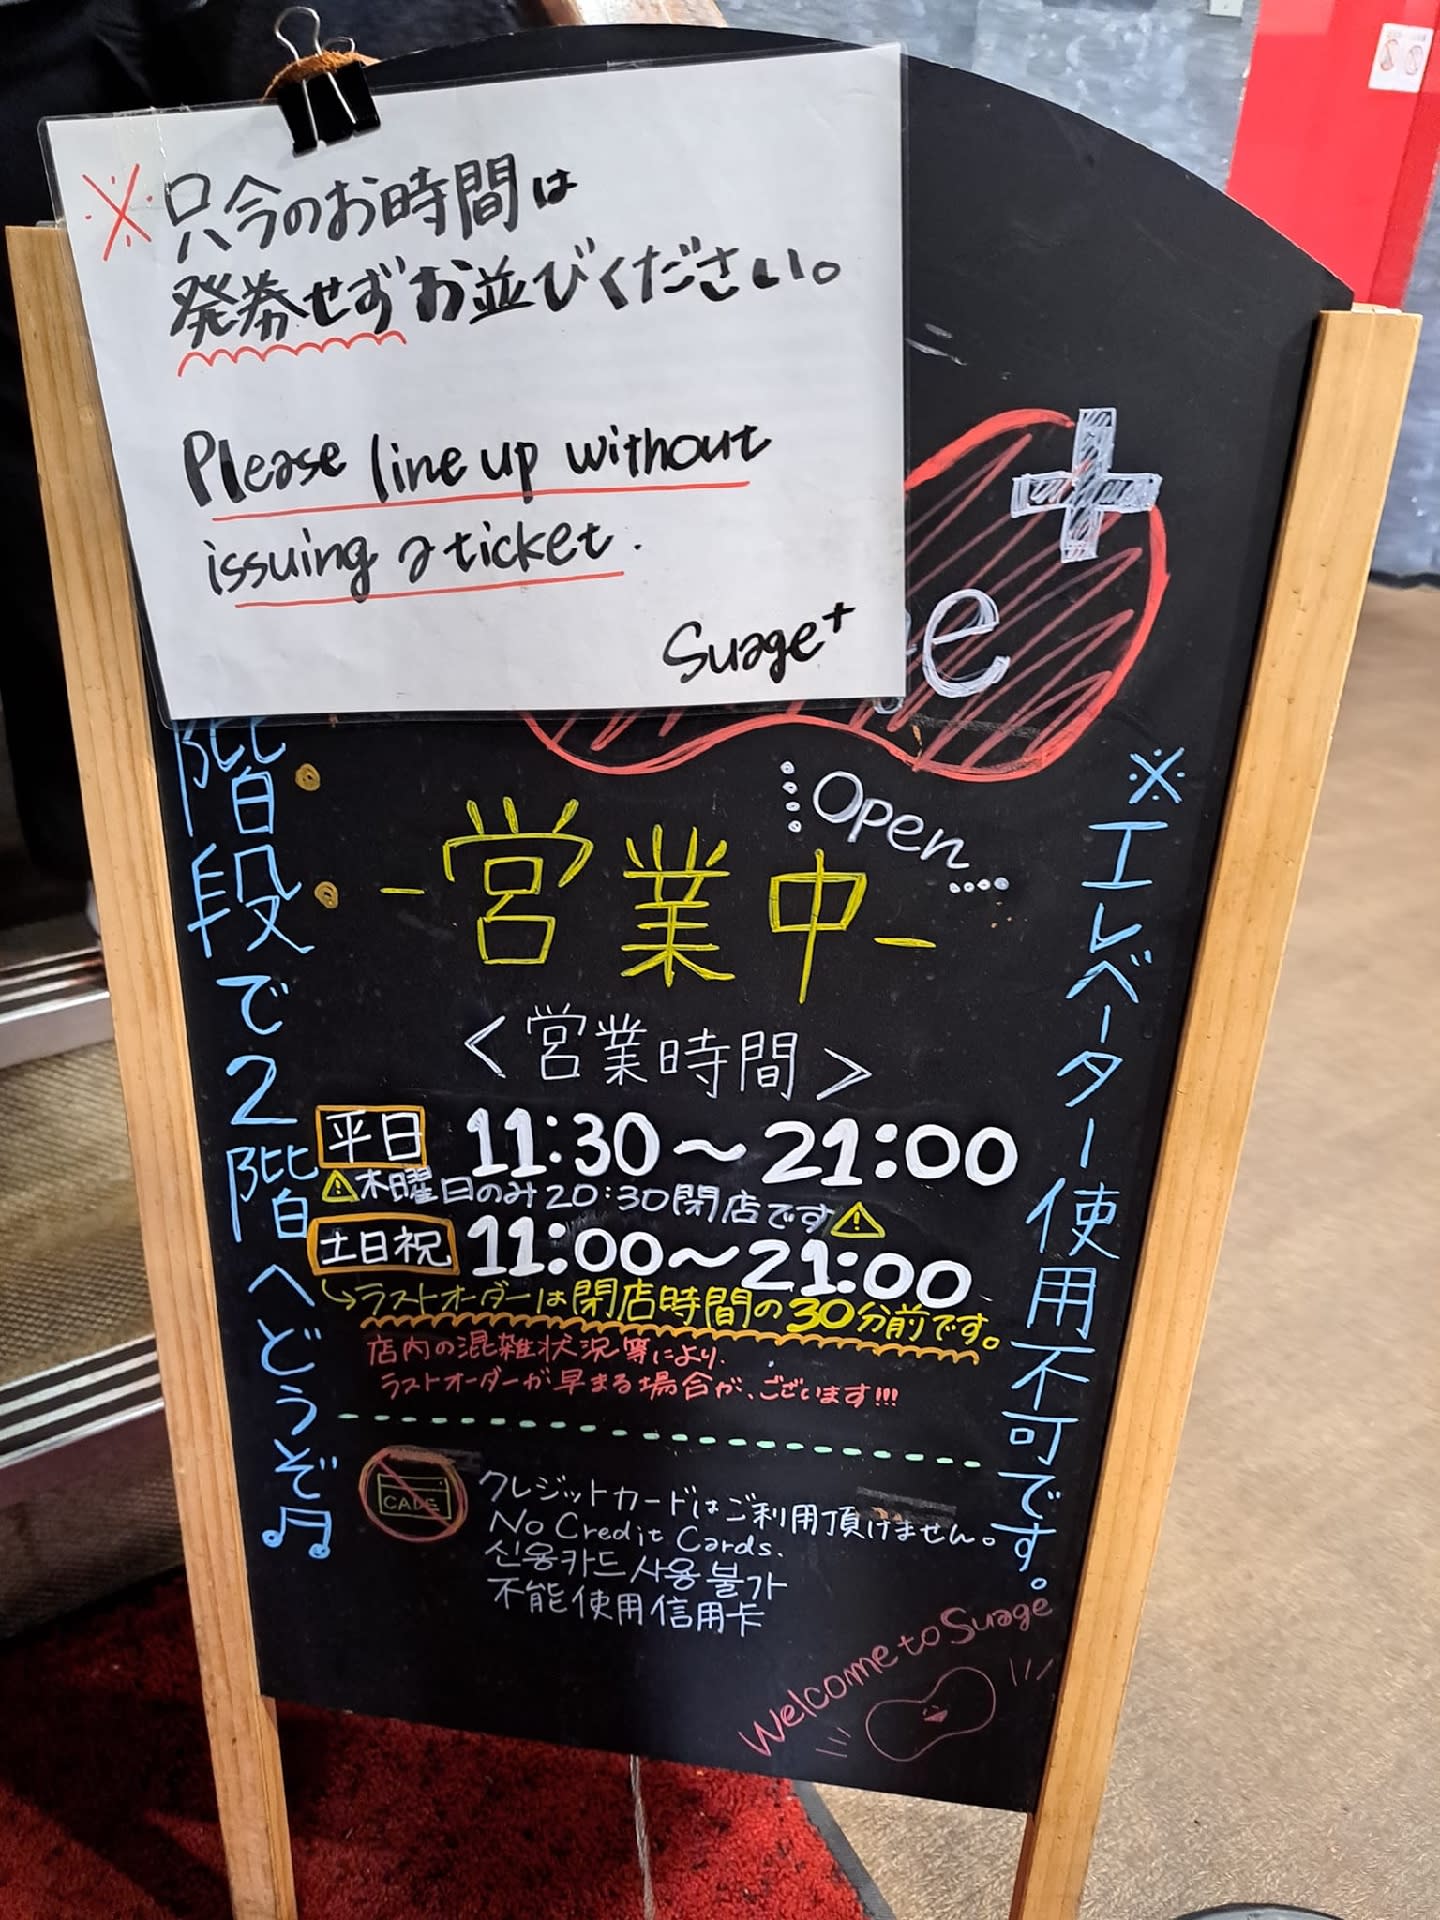 ※只今のお時間は
発券せずお並びください。
Please line up without
issuing a ticket.
Suage+
e+
Open
-営業中-
<営業時間>
平日 11:30~21:00
⚠木曜日のみ20:30閉店です⚠
土日祝 11:00~21:00
ラストオーダーは閉店時間の30分前です。
店内の混雑状況等により、
ラストオーダーが早まる場合が、ございます!!!
クレジットカードはご利用頂けません。
No Credit Cards.
신용카드 사용 불가
不能使用信用卡
Welcome to Suage
階段で2階へどうぞ♫
※エレベーター使用不可です。